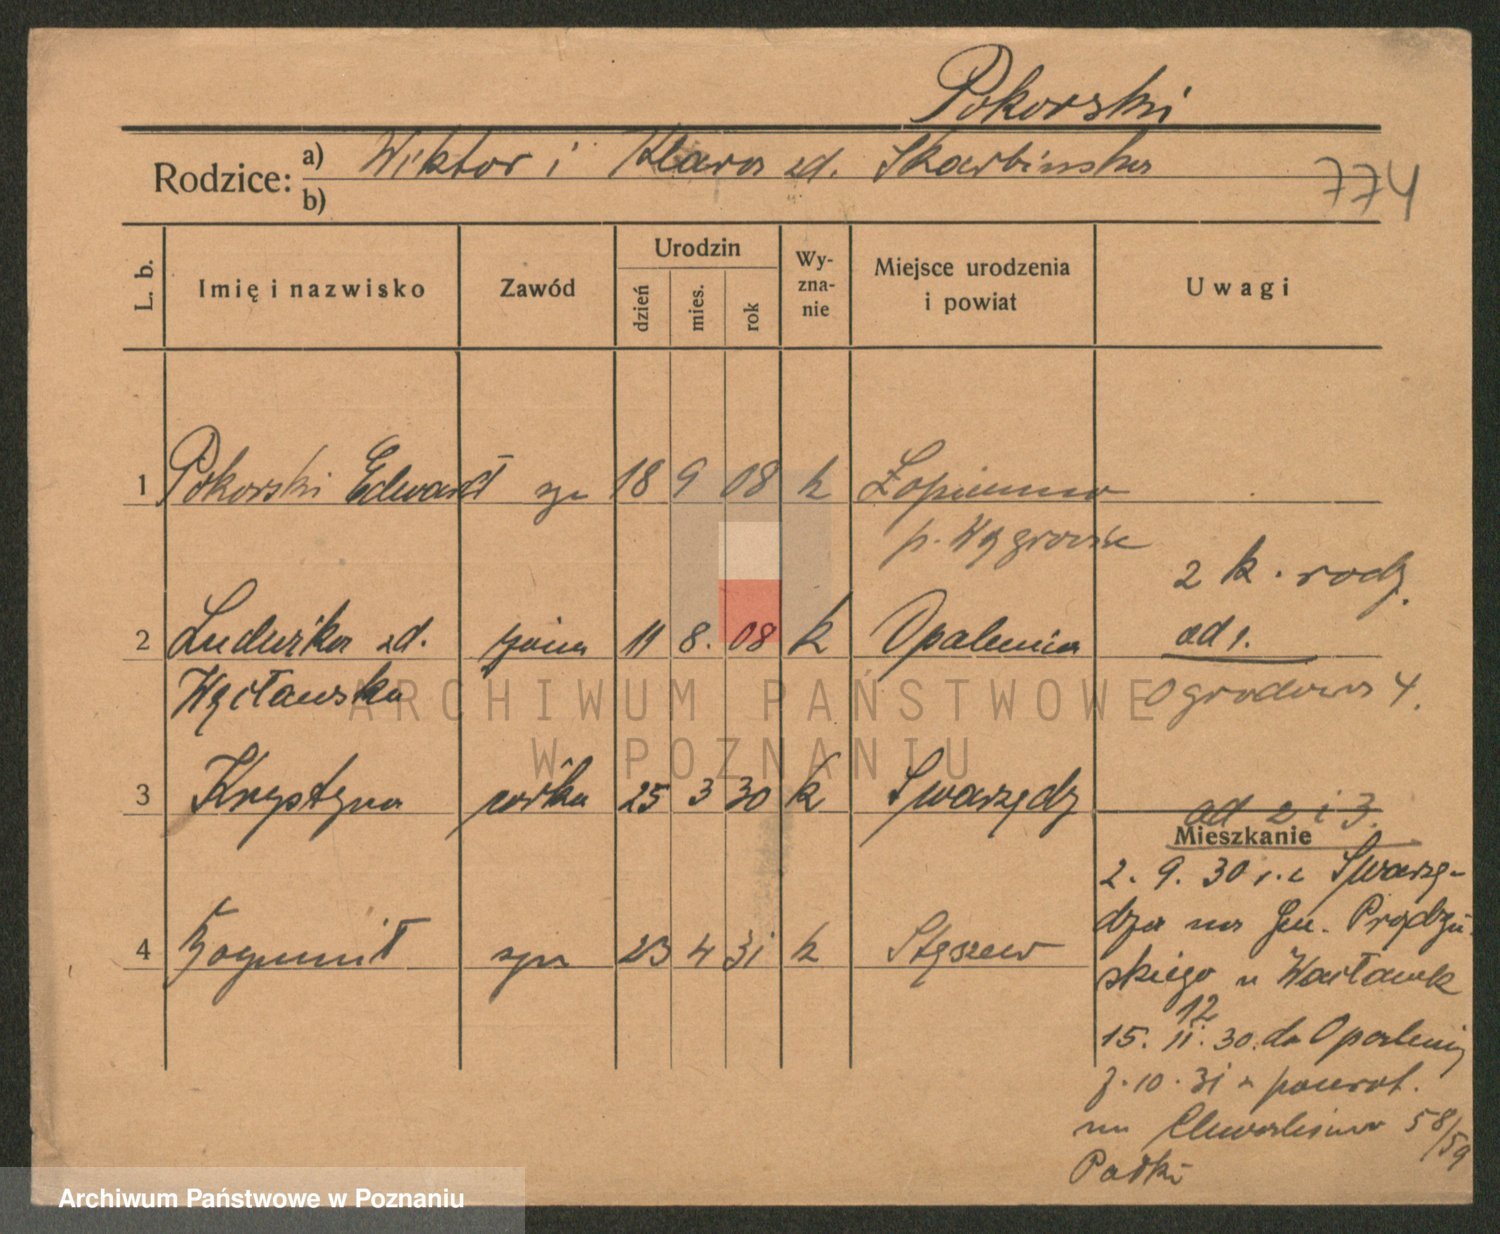 Pokorski
Rodzice: a) Wiktor i Klara zd. Skarbińska
b)
774
L. b.
Imię i nazwisko
Zawód
Urodzin
dzień
mies.
rok
Wy-
zna-
nie
Miejsce urodzenia
i powiat
Uwagi
1 Pokorski Edward syn 18 9 08 k Łopienno
p. Wągrowiec
2 k. rodz.
2 Ludwika zd. żona 11 8. 08 k Opalenica
ad 1.
Węcławska
Ogrodowa 4.
3 Krystyna córka 25 3 30 k Swarzędz
ad 2 i 3.
Mieszkanie
2. 9. 30 r. z Swarzę-
dza na Gen. Prądzyń-
4 Bogumił syn 23 4 31 k Stęszew
skiego u Wacławek
12
15. 11. 30. do Opalenicy
7. 10. 31 z powrot.
na Chwaliszewo 58/59
Patki
ARCHIWUM PAŃSTWOWE
W POZNANIU
Archiwum Państwowe w Poznaniu